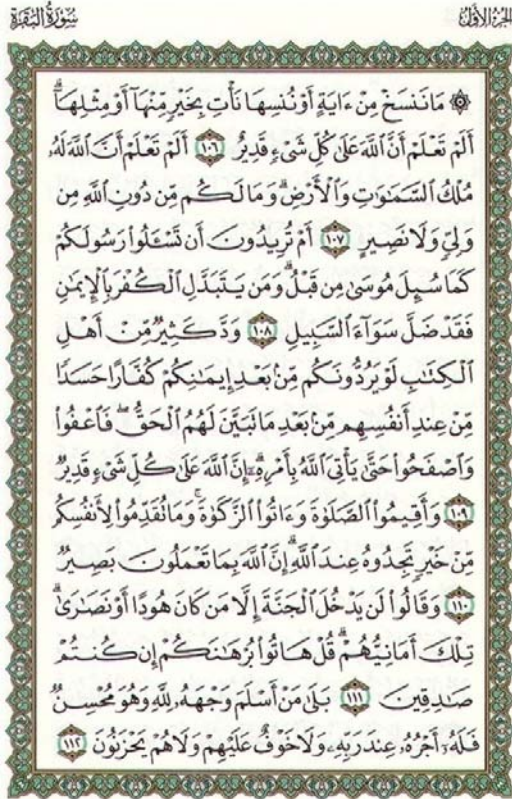 الجزء الأول
سورة البقرة
۞ مَا نَنسَخْ مِنْ ءَايَةٍ أَوْ نُنسِهَا نَأْتِ بِخَيْرٍ مِّنْهَآ أَوْ مِثْلِهَآ ۗ
أَلَمْ تَعْلَمْ أَنَّ ٱللَّهَ عَلَىٰ كُلِّ شَىْءٍ قَدِيرٌ ١٠٦ أَلَمْ تَعْلَمْ أَنَّ ٱللَّهَ لَهُۥ
مُلْكُ ٱلسَّمَـٰوَٰتِ وَٱلْأَرْضِ ۗ وَمَا لَكُم مِّن دُونِ ٱللَّهِ مِن
وَلِىٍّ وَلَا نَصِيرٍ ١٠٧ أَمْ تُرِيدُونَ أَن تَسْـَٔلُوا۟ رَسُولَكُمْ
كَمَا سُئِلَ مُوسَىٰ مِن قَبْلُ ۗ وَمَن يَتَبَدَّلِ ٱلْكُفْرَ بِٱلْإِيمَـٰنِ
فَقَدْ ضَلَّ سَوَآءَ ٱلسَّبِيلِ ١٠٨ وَدَّ كَثِيرٌ مِّنْ أَهْلِ
ٱلْكِتَـٰبِ لَوْ يَرُدُّونَكُم مِّنۢ بَعْدِ إِيمَـٰنِكُمْ كُفَّارًا حَسَدًا
مِّنْ عِندِ أَنفُسِهِم مِّنۢ بَعْدِ مَا تَبَيَّنَ لَهُمُ ٱلْحَقُّ ۖ فَٱعْفُوا۟
وَٱصْفَحُوا۟ حَتَّىٰ يَأْتِىَ ٱللَّهُ بِأَمْرِهِۦٓ ۗ إِنَّ ٱللَّهَ عَلَىٰ كُلِّ شَىْءٍ قَدِيرٌ
١٠٩ وَأَقِيمُوا۟ ٱلصَّلَوٰةَ وَءَاتُوا۟ ٱلزَّكَوٰةَ ۚ وَمَا تُقَدِّمُوا۟ لِأَنفُسِكُم
مِّنْ خَيْرٍ تَجِدُوهُ عِندَ ٱللَّهِ ۗ إِنَّ ٱللَّهَ بِمَا تَعْمَلُونَ بَصِيرٌ
١١٠ وَقَالُوا۟ لَن يَدْخُلَ ٱلْجَنَّةَ إِلَّا مَن كَانَ هُودًا أَوْ نَصَـٰرَىٰ ۗ
تِلْكَ أَمَانِيُّهُمْ ۗ قُلْ هَاتُوا۟ بُرْهَـٰنَكُمْ إِن كُنتُمْ
صَـٰدِقِينَ ١١١ بَلَىٰ مَنْ أَسْلَمَ وَجْهَهُۥ لِلَّهِ وَهُوَ مُحْسِنٌ
فَلَهُۥٓ أَجْرُهُۥ عِندَ رَبِّهِۦ وَلَا خَوْفٌ عَلَيْهِمْ وَلَا هُمْ يَحْزَنُونَ ١١٢